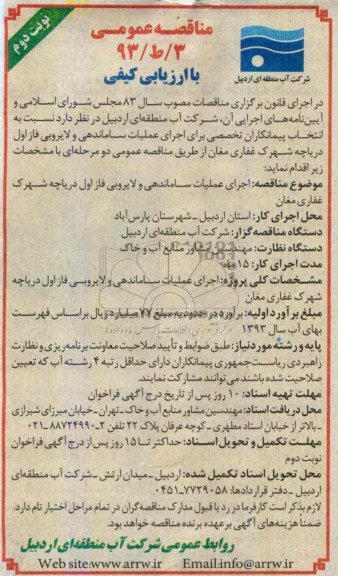 نوبت دوم
مناقصه عمومی
۹۳/ط/۳
با ارزیابی کیفی
شرکت آب منطقه ای اردبیل
در اجرای قانون برگزاری مناقصات مصوب سال ۸۳ مجلس شورای اسلامی و
آیین‌نامه‌های اجرایی آن، شرکت آب منطقه‌ای اردبیل در نظر دارد نسبت به
انتخاب پیمانکاران تخصصی برای اجرای عملیات ساماندهی و لایروبی فاز اول
دریاچه شهرک غفاری مغان از طریق مناقصه عمومی دو مرحله‌ای با مشخصات
زیر اقدام نماید:
موضوع مناقصه: اجرای عملیات ساماندهی و لایروبی فاز اول دریاچه شهرک
غفاری مغان
محل اجرای کار: استان اردبیل ـ شهرستان پارس‌آباد
دستگاه مناقصه‌گزار: شرکت آب منطقه‌ای اردبیل
دستگاه نظارت: مهندسین مشاور منابع آب و خاک
مدت اجرای کار: ۱۵ ماه
مشخصات کلی پروژه: اجرای عملیات ساماندهی و لایروبی فاز اول دریاچه
شهرک غفاری مغان
مبلغ برآورد اولیه: برآورد در حدود به مبلغ ۷۷ میلیارد ریال براساس فهرست
بهای آب سال ۱۳۹۳
پایه و رشته مورد نیاز: طبق ضوابط و تأیید صلاحیت معاونت برنامه‌ریزی و نظارت
راهبردی ریاست جمهوری پیمانکاران دارای حداقل رتبه ۴ رشته آب که تعیین
صلاحیت شده باشند می‌توانند مشارکت نمایند.
مهلت تهیه اسناد: ۱۰ روز پس از تاریخ درج آگهی فراخوان
محل دریافت اسناد: مهندسین مشاور منابع آب و خاک ـ تهران ـ خیابان میرزای شیرازی
ـ بالاتر از خیابان استاد مطهری ـ کوچه عرفان پلاک ۲۲ تلفن ۲-۸۸۷۲۴۹۹۰-۰۲۱
مهلت تکمیل و تحویل اسناد: حداکثر تا ۱۵ روز پس از درج آگهی فراخوان
نوبت دوم
محل تحویل اسناد تکمیل شده: اردبیل ـ میدان ارتش ـ شرکت آب منطقه‌ای
اردبیل ـ دفتر قراردادها: ۷۷۲۹۰۵۸-۰۴۵۱
لازم بذکر است کارفرما در رد یا قبول مدارک مناقصه‌گران در تمام مراحل اختیار تام دارد.
ضمناً هزینه‌های آگهی بر عهده برنده مناقصه خواهد بود.
روابط عمومی شرکت آب منطقه‌ای اردبیل
Web site:www.arrw.ir Email:info@arrw.ir